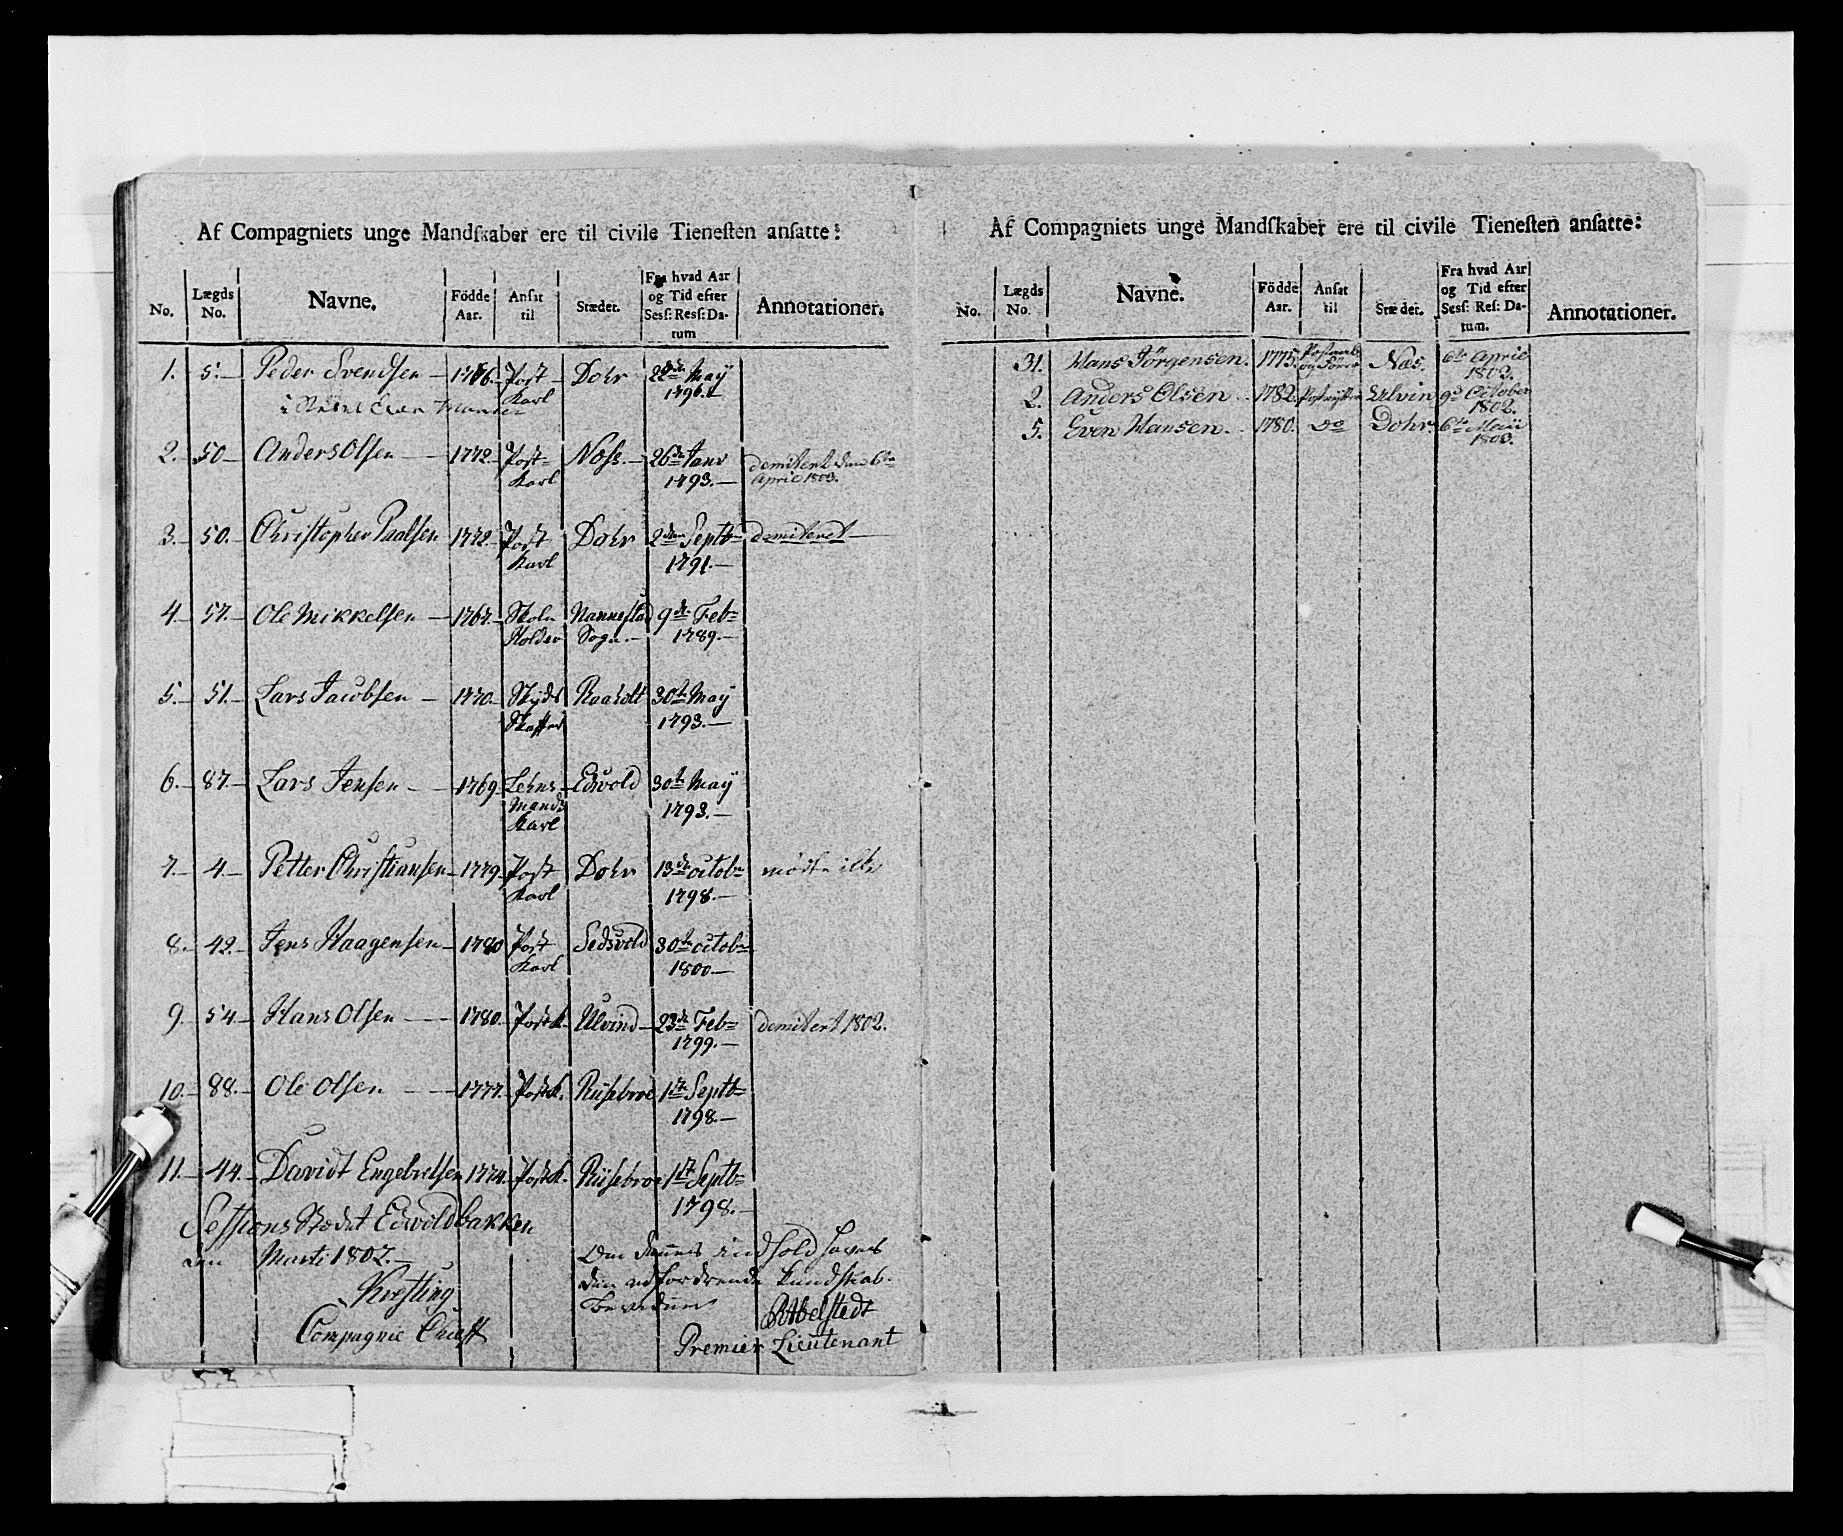 Af Compagniets unge Mandſkaber ere til civile Tieneſten anſatte:
No. Lægds No. Navne. Födde Aar. Anſat til Stædet. Fra hvad Aar og Tid efter Sesſ: Resſ: Datum Annotationer.
1. 5. Peder Svendsen 1766. Post Karl Dohr 22de Maÿ 1796.
i Stædet Even Hansen
2. 50 Anders Olsen 1772 Post Karl Næss 26de Janv 1793. demitert den 6te April 1803.
3. 50. Christopher Paalsen 1772 Post Karl Dohr 2den Septb 1791. demiteret
4. 57. Ole Mikkelsen 1767. Skole Holder Nannestad Sogn. 9de Feb 1789.
5. 51. Lars Jacobsen 1770. Skyds Skaffer Raaholt 30te May 1793.
6. 87. Lars Jensen 1769 Lehns Mands Karl Edwold 30te Maÿ 1793.
7. 4. Petter Christiansen 1779 Post Karl Dohr 13de octob 1798. mödte ikke
8. 42. Jens Haagensen 1780 Post Karl Sedsvold 30te octob 1800
9. 54 Hans Olsen 1780. Post K. Ulvind 23de Feb 1799. demitert 1802.
10. 88. Ole Olsen 1777. Post K. Riisebroe 1te Septb 1798
11. 44. Davidt Engebretsen 1774. Post K. Riisebroe 1te Septb 1798.
Sessions Stædet Edwoldbakken
den Marti 1802.
Om dennes indhold haves
den udfordrende kundskab.
Kresting
Compagnie Cheff
Abelstedt
Premier Lieutenant
Af Compagniets unge Mandſkaber ere til civile Tieneſten anſatte:
No. Lægds No. Navne. Födde Aar. Anſat til Stædet. Fra hvad Aar og Tid efter Sesſ: Resſ: Datum. Annotationer.
31. Hans Jörgensen. 1775. Næs. 6te April 1803.
2. Anders Olsen 1782. Ulvin 9de October 1802.
5. Even Hansen. 1780. do Dohr. 6te Maii 1803.